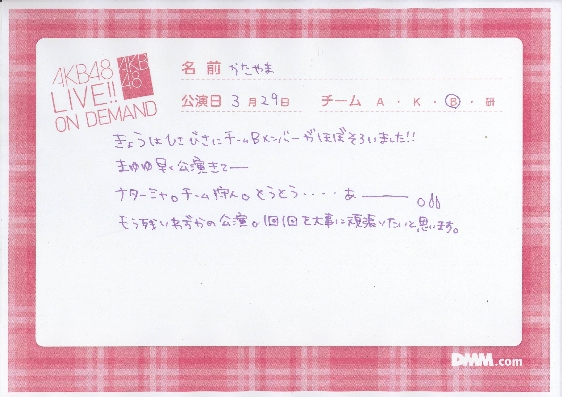 AKB48
LIVE!!
ON DEMAND
AKB
48
名前 かたやま
公演日 3月29日 チーム A・K・B・研
きょうはひさびさにチームBメンバーがほぼそろいました!!
まゆゆ早く公演きてー
ナターシャ。チーム狩人。とうとう・・・・あー
もう残りわずかの公演。1回1回を大事に頑張りたいと思います。
DMM.com